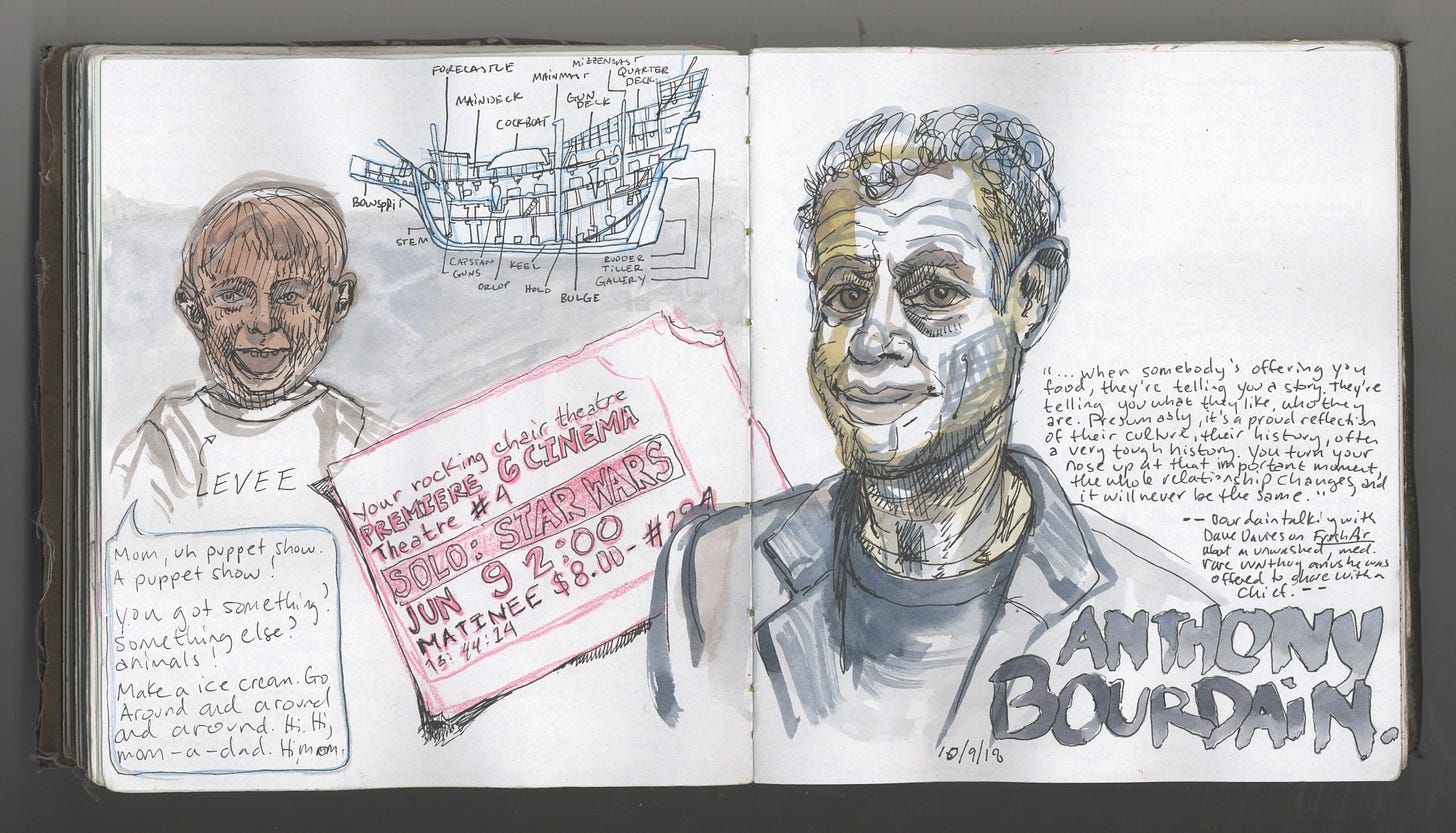 FORECASTLE
MAINDECK
COCKBOAT
MAINMAST
GUN
DECK
MIZZENMAST
QUARTER
DECK
BOWSPRIT
STEM
CAPSTAN
GUNS
ORLOP
KEEL
HOLD
BULGE
RUDDER
TILLER
GALLERY
LEVEE
Mom, uh puppet show.
A puppet show!
You got something?
Something else?
animals!
Make a ice cream. Go
Around and around
and around. Hi. Hi,
mom-a-dad. Hi, mom.
your rocking chair theatre
PREMIERE 6 CINEMA
Theatre #4
SOLO: STAR WARS
JUN 9 2:00
MATINEE $8.00-
13:44:14
"... when somebody's offering you
food, they're telling you a story. they're
telling you what they like, who they
are. Presumably, it's a proud reflection
of their culture, their history, often
a very tough history. You turn your
nose up at that important moment,
the whole relationship changes, and
it will never be the same."
-- Bourdain talking with
Dave Davies on Fresh Air
about an unwashed, med.
rare warthog anus he was
offered to share with a
chief. --
ANTHONY
BOURDAIN.